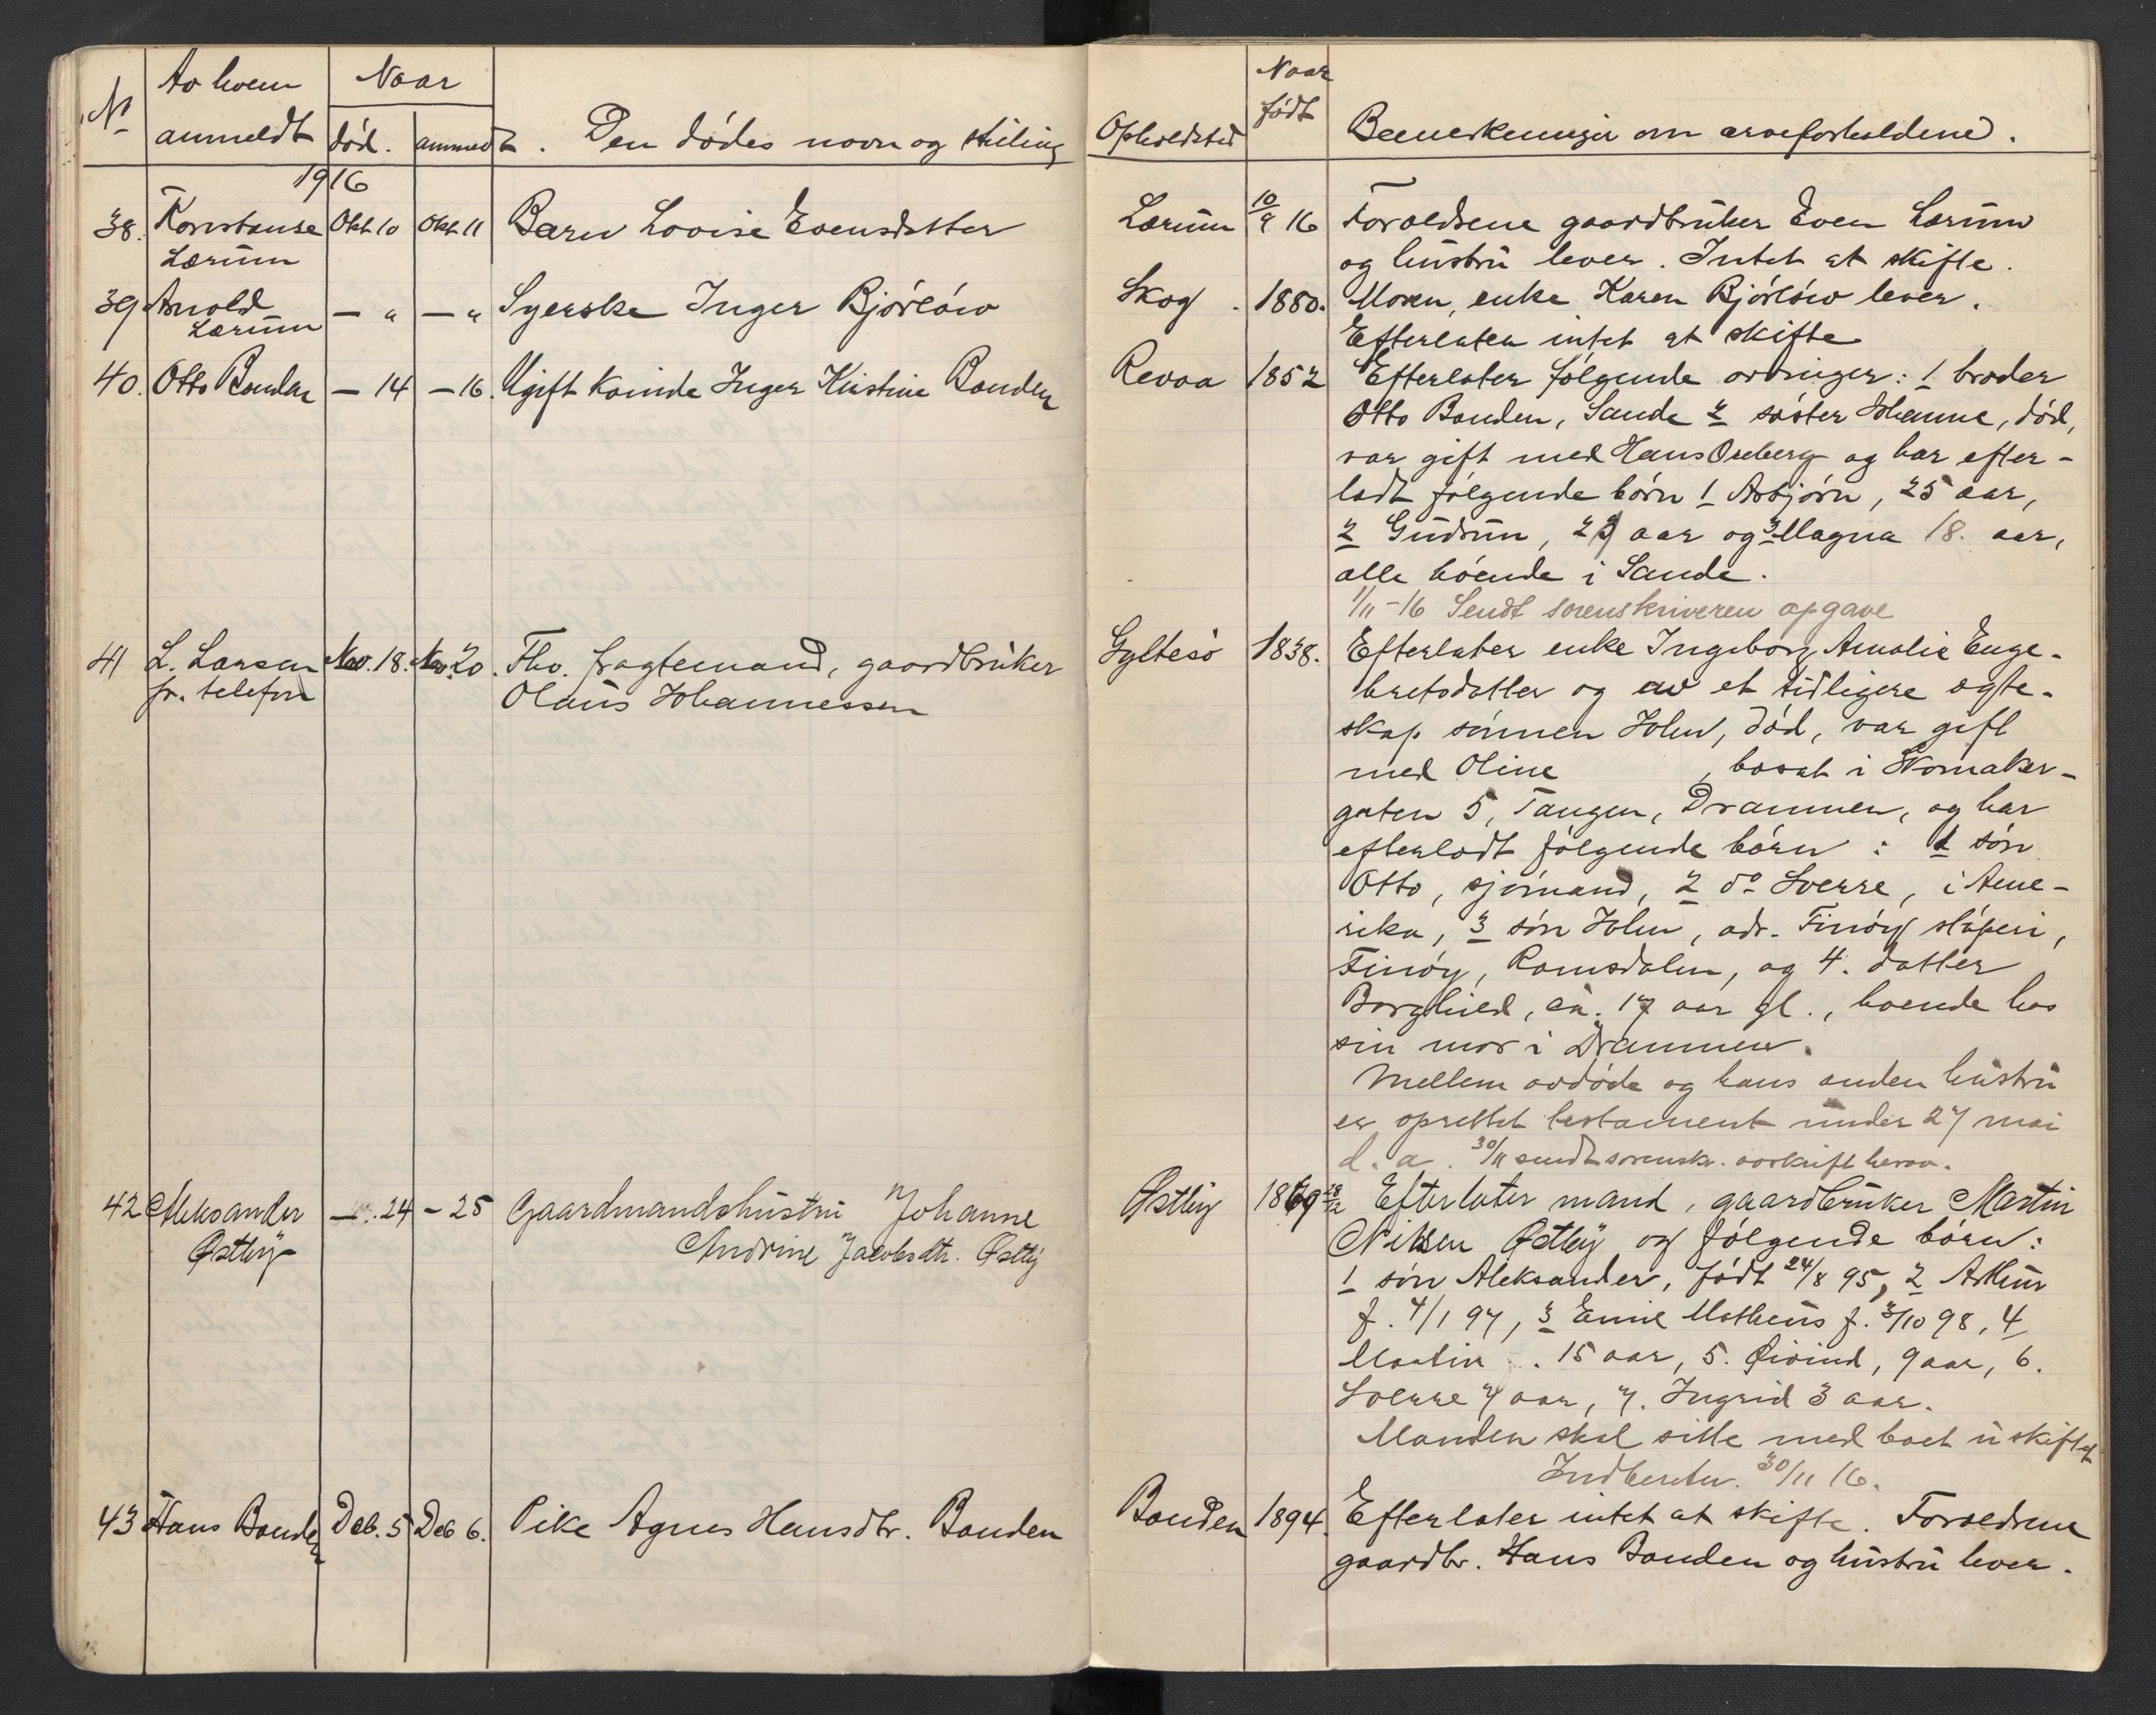 No
Av hvem
anmeldt
Naar
død.
anmeldt.
Den dødes navn og stilling
Opholdsted
Naar
født
Bemerkninger om arveforholdene.
1916
38. Konstanse Okt. 10 Okt. 11 Barn Lovise Evensdatter Lærum 10/9 16 Forældrene gaardbruker Even Lærum
Lærum og hustru lever. Intet at skifte.
39 Arnold — " — " Syerske Inger Bjørløw Skog. 1880. Moren, enke Karen Bjørløw lever.
Lærum Efterlater intet at skifte
40. Otto Bonden — 14 — 16. Ugift kvinde Inger Kristine Bonden Revaa 1852 Efterlater følgende arvinger: 1 broder
Otto Bonden, Sande 2 søster Johanne, død,
var gift med Hans Oseberg og har efter-
ladt følgende børn 1 Asbjørn, 25 aar,
2 Gudrun, 23 aar og 3 Magna 18. aar,
alle boende i Sande.
1/11-16 Sendt sorenskriveren opgave
41 L. Larsen Nov. 18. Nov. 20. Fhv. fragtemand, gaardbruker Gyltesø 1838. Efterlater enke Ingeborg Amalie Enge-
pr. telefon Olaus Johannessen bretsdatter og av et tidligere egte-
skap sønnen John, død, var gift
med Oline , bosat i Skomaker-
gaten 5, Tangen, Drammen, og har
efterladt følgende børn: 1 søn
Otto, sjømand, 2 do Sverre, i Ame-
rika, 3 søn John, adr. Finøy sliperi,
Finøy, Romsdalen, og 4. datter
Borghild, ca. 17 aar gl., boende hos
sin mor i Drammen.
Mellem avdøde og hans anden hustru
er oprettet testament under 27 mai
d. a. 30/11 sendt sorenskr. avskrift herav.
42 Aleksander — 24 — 25 Gaardmandshustru Johanne Østby 1869 28/12 Efterlater mand, gaardbruker Martin
Østby Andrine Jacobsdtr. Østby Nilsen Østby og følgende børn:
1 søn Aleksander, født 24/8 95, 2 Arthur
f. 4/1 97, 3 Emil Matheus f. 3/10 98, 4
Martin . 15 aar, 5. Øivind, 9 aar, 6.
Sverre 7 aar, 7. Ingrid 3 aar.
Manden skal sitte med boet uskiftet
Indberetn. 30/11 16.
43 Hans Bonden Deb. 5 Deb 6. Pike Agnes Hansdtr. Bonden Bonden 1894. Efterlater intet at skifte. Forældrene
gaardbr. Hans Bonden og hustru lever.